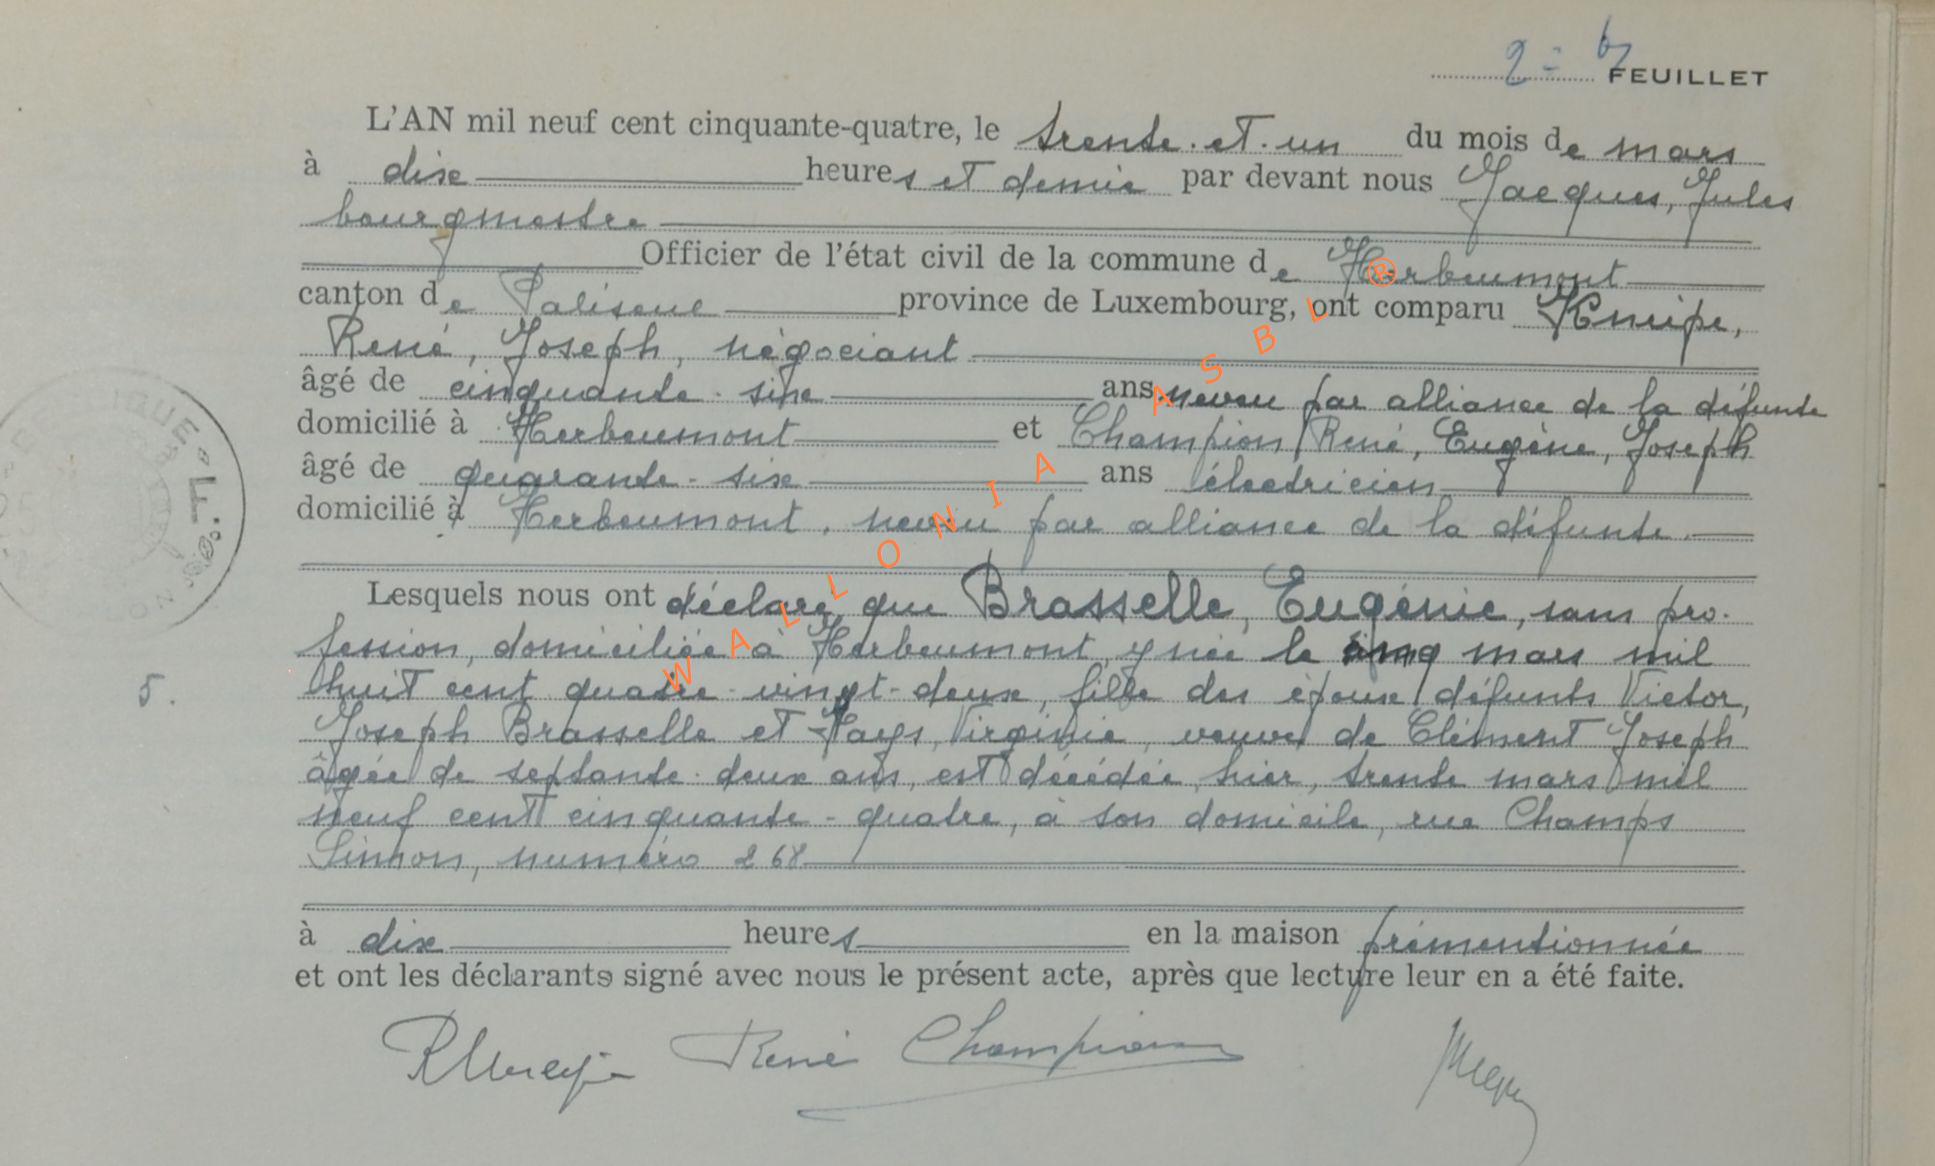 2 = b FEUILLET
L'AN mil neuf cent cinquante-quatre, le trente-et-un du mois de mars
à dix heures et demie par devant nous Jacques, Jules
bourgmestre
Officier de l'état civil de la commune de Herbeumont
canton de Paliseul province de Luxembourg, ont comparu Kneipe,
René, Joseph, négociant
âgé de cinquante-six ans neveu par alliance de la défunte
domicilié à Herbeumont et Champion René, Eugène, Joseph
âgé de quarante-six ans électricien
domicilié à Herbeumont, neveu par alliance de la défunte.
Lesquels nous ont déclaré que Brasselle, Eugénie, sans pro-
fession, domiciliée à Herbeumont, y née le cinq mars mil
5. huit cent quatre-vingt-deux, fille des époux défunts Victor,
Joseph Brasselle et Pays, Virginie, veuve de Clément Joseph
âgée de septante-deux ans, est décédée, hier, trente mars mil
neuf cent cinquante-quatre, à son domicile, rue Champs
Simon, numéro 268
à dix heures en la maison prémentionnée
et ont les déclarants signé avec nous le présent acte, après que lecture leur en a été faite.
René Champion
WALLONIA ASBL ®